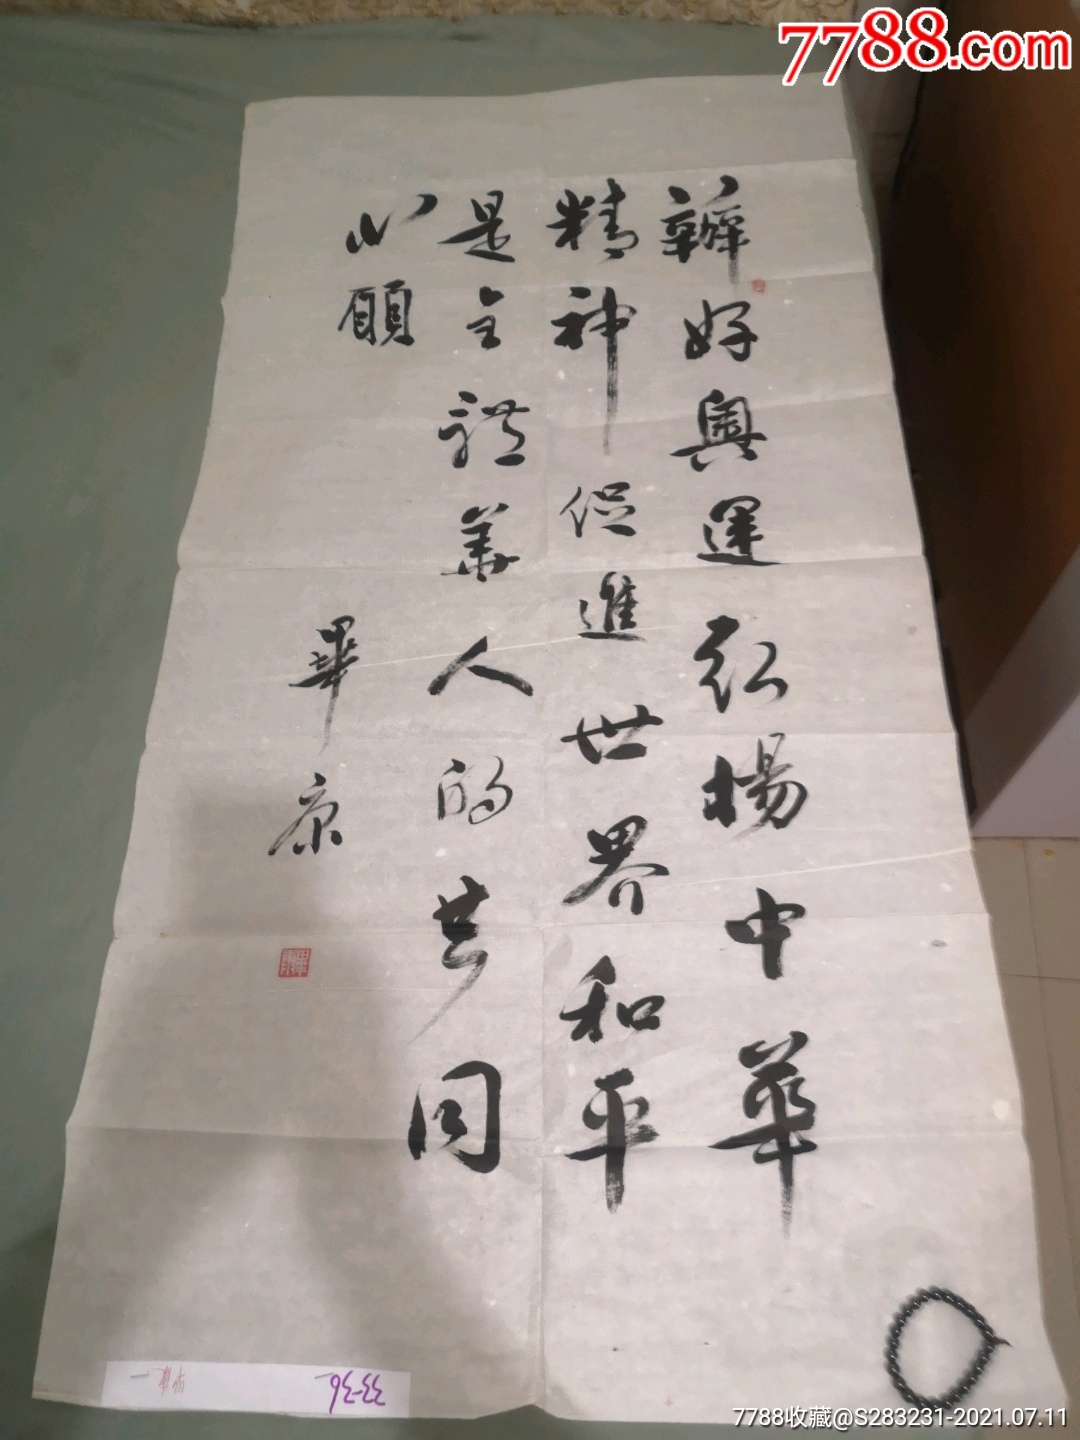 7788.com
辦好奧運弘揚中華
精神促進世界和平
是全體華人的共同
心願
畢康
7788收藏@S283231-2021.07.11